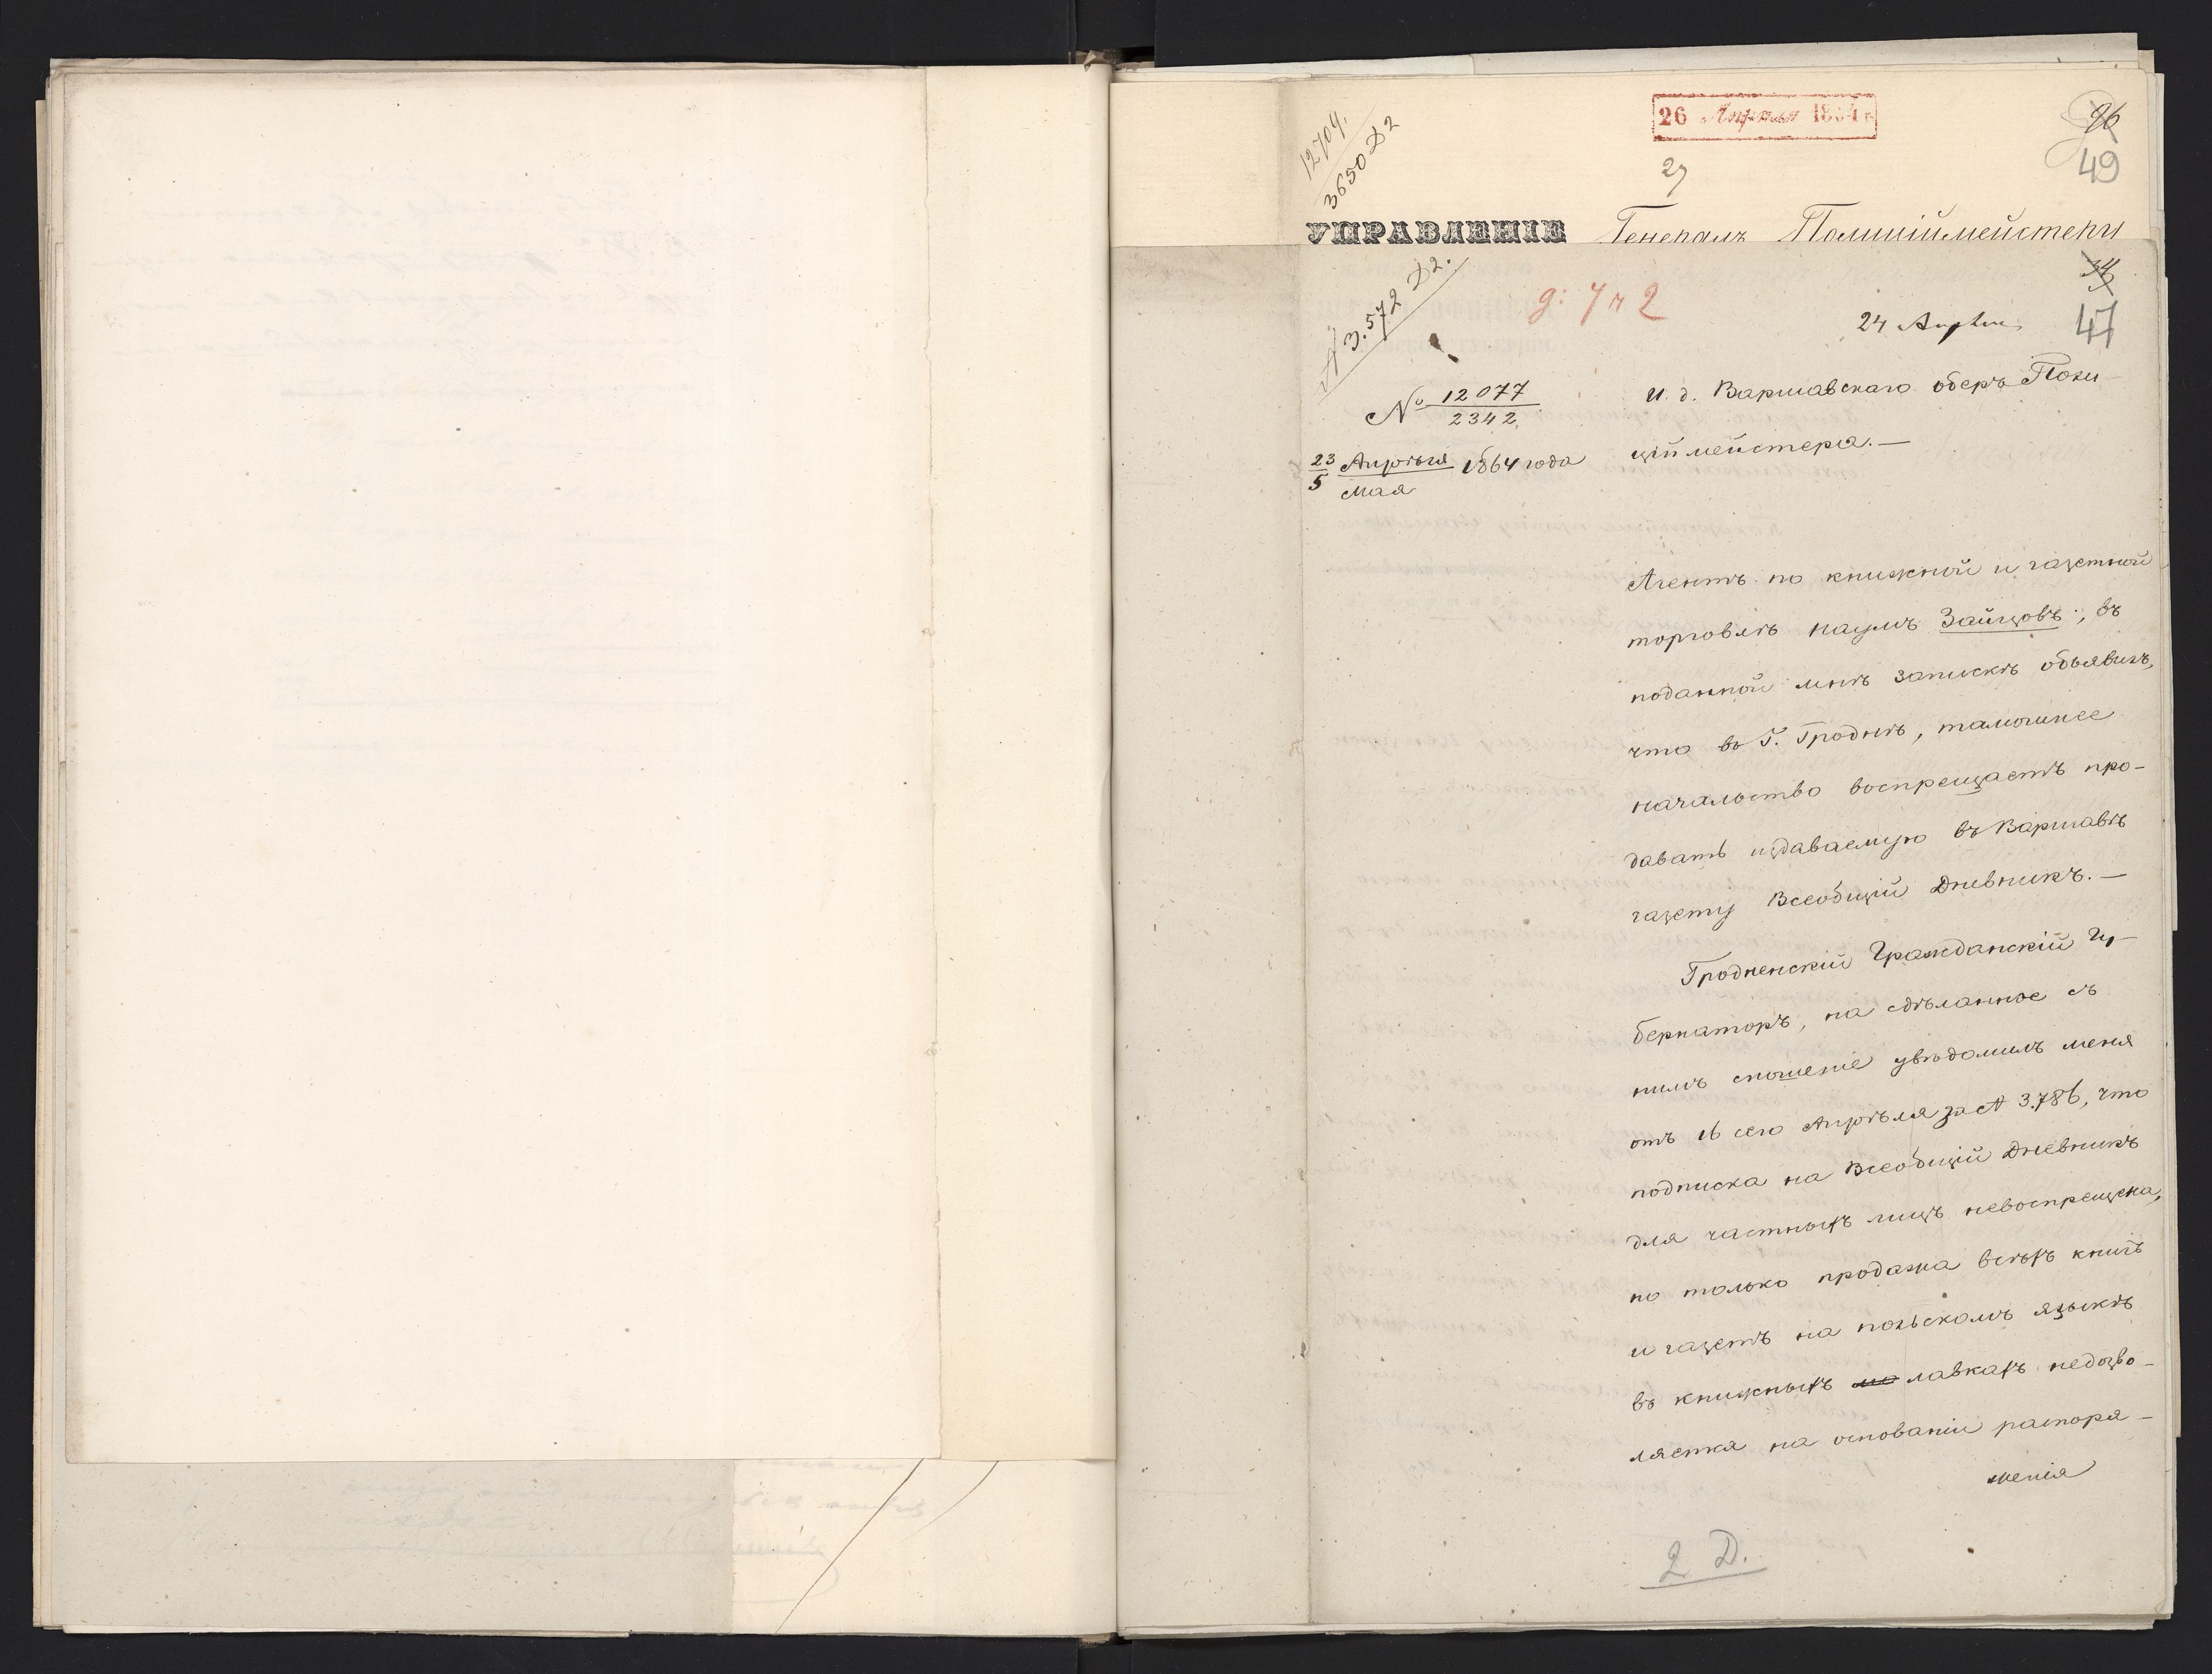 26 Апреля 1864 г.
96
12704.
3650 Д 2
27
49
УПРАВЛЕНІЕ Генералъ Полиціймейстеру
№ 3.572 Д2.
д: 4 № 2
34
24 Апрѣля
47
№ 12077
2342
И. д. Варшавскаго оберъ Поли-
ціймейстера.—
23 Апрѣля 1864 года
5 Мая
Агентъ по книжной и газетной
торговлѣ Наумъ Зайцовъ, въ
поданной мнѣ запискѣ объявилъ,
что въ Г. Гроднѣ, тамошнее
начальство воспрещаетъ про-
давать издаваемую въ Варшавѣ
газету Всеобщій Дневникъ.—
Гродненскій Гражданскій Гу-
бернаторъ, на сдѣланное съ
нимъ сношеніе увѣдомилъ меня
отъ 16 сего Апрѣля за № 3.786, что
подписка на Всеобщій Дневникъ
для частныхъ лицъ невоспрещена,
но только продажа всѣхъ книгъ
и газетъ на польскомъ языкѣ
въ книжныхъ лавкахъ недозво-
ляется на основаніи распоря-
женія
2 Д.